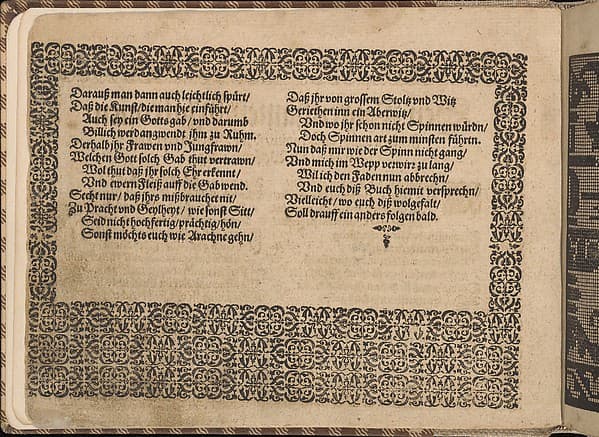 Darauß man dann auch leichtlich spürt/
Daß die Kunst/ die man hie einführt/
Auch sey ein Gotts gab/ vnd darumb
Billich werd angwendt jhm zu Ruhm.
Derhalb jhr Frawen vnd Jungfrawn/
Welchen Gott solch Gab thut vertrawn/
Wol thut daß jhr solch Ehr erkennt/
Vnd ewern Fleiß auff die Gab wend.
Secht nur/ daß jhrs mißbrauchet nit/
Zu Pracht vnd Geylheyt/ wie sonst Sitt/
Seid nicht hochfertig/ prächtig/ hön/
Sonst möchts euch wie Arachne gehn/
Daß jhr von grossem Stoltz vnd Witz
Geriethen inn ein Aberwitz/
Vnd wo jhr schon nicht Spinnen würdn/
Doch Spinnen art zum minsten führen.
Nun daß mir wie der Spinn nicht gang/
Vnd mich im Wepp verwirr zu lang/
Wil ich den Faden nun abbrechn/
Vnd euch diß Buch hiemit versprechn/
Vielleicht/ wo euch diß wolgefalt/
Soll drauff ein anders folgen bald.